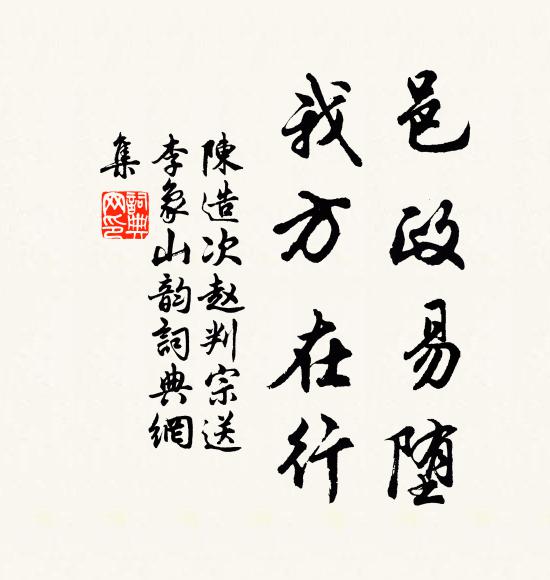 邑政易堕
我方在行
陳造次赵判宗送
李象山韵詞典網
集
詞典网印